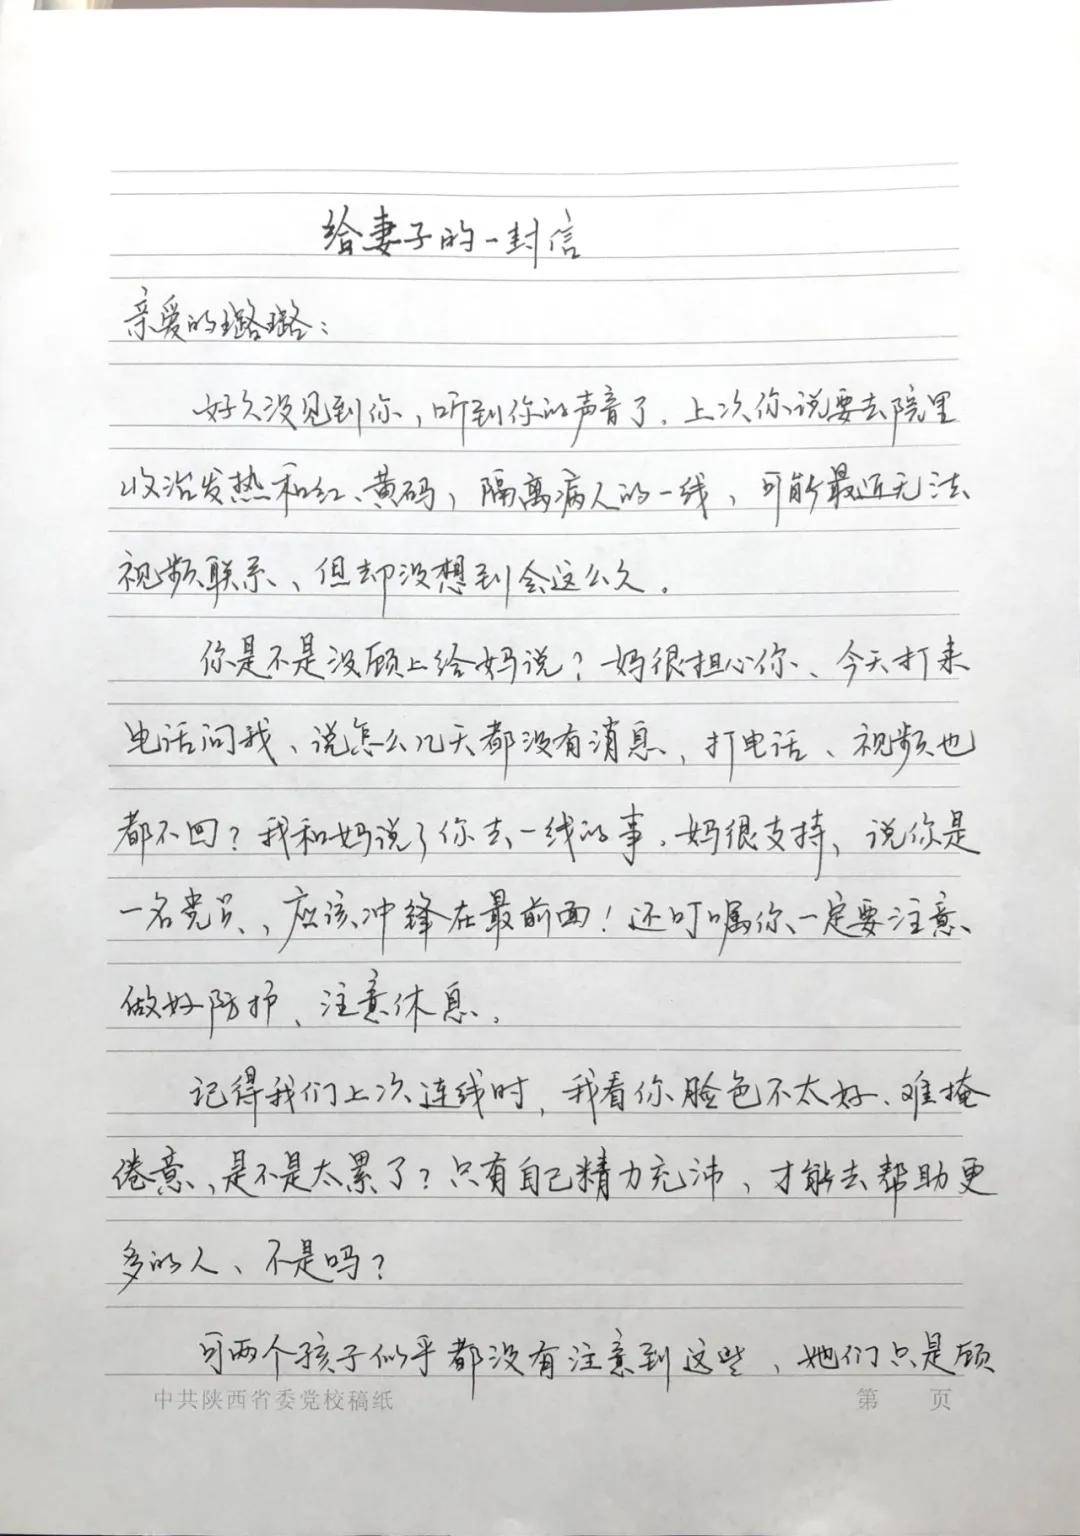 给妻子的一封信
亲爱的璐璐：
好久没见到你，听到你的声音了。上次你说要去院里
收治发热和红、黄码，隔离病人的一线，可能最近无法
视频联系、但却没想到会这么久。
你是不是没顾上给妈说？妈很担心你、今天打来
电话问我、说怎么几天都没有消息、打电话、视频也
都不回？我和妈说了你去一线的事，妈很支持、说你是
一名党员、应该冲锋在最前面！还叮嘱你一定要注意
做好防护、注意休息。
记得我们上次连线时，我看你脸色不太好、难掩
倦意、是不是太累了？只有自己精力充沛、才能去帮助更
多的人、不是吗？
可两个孩子似乎都没有注意到这些、她们只是顾
中共陕西省委党校稿纸 第 页